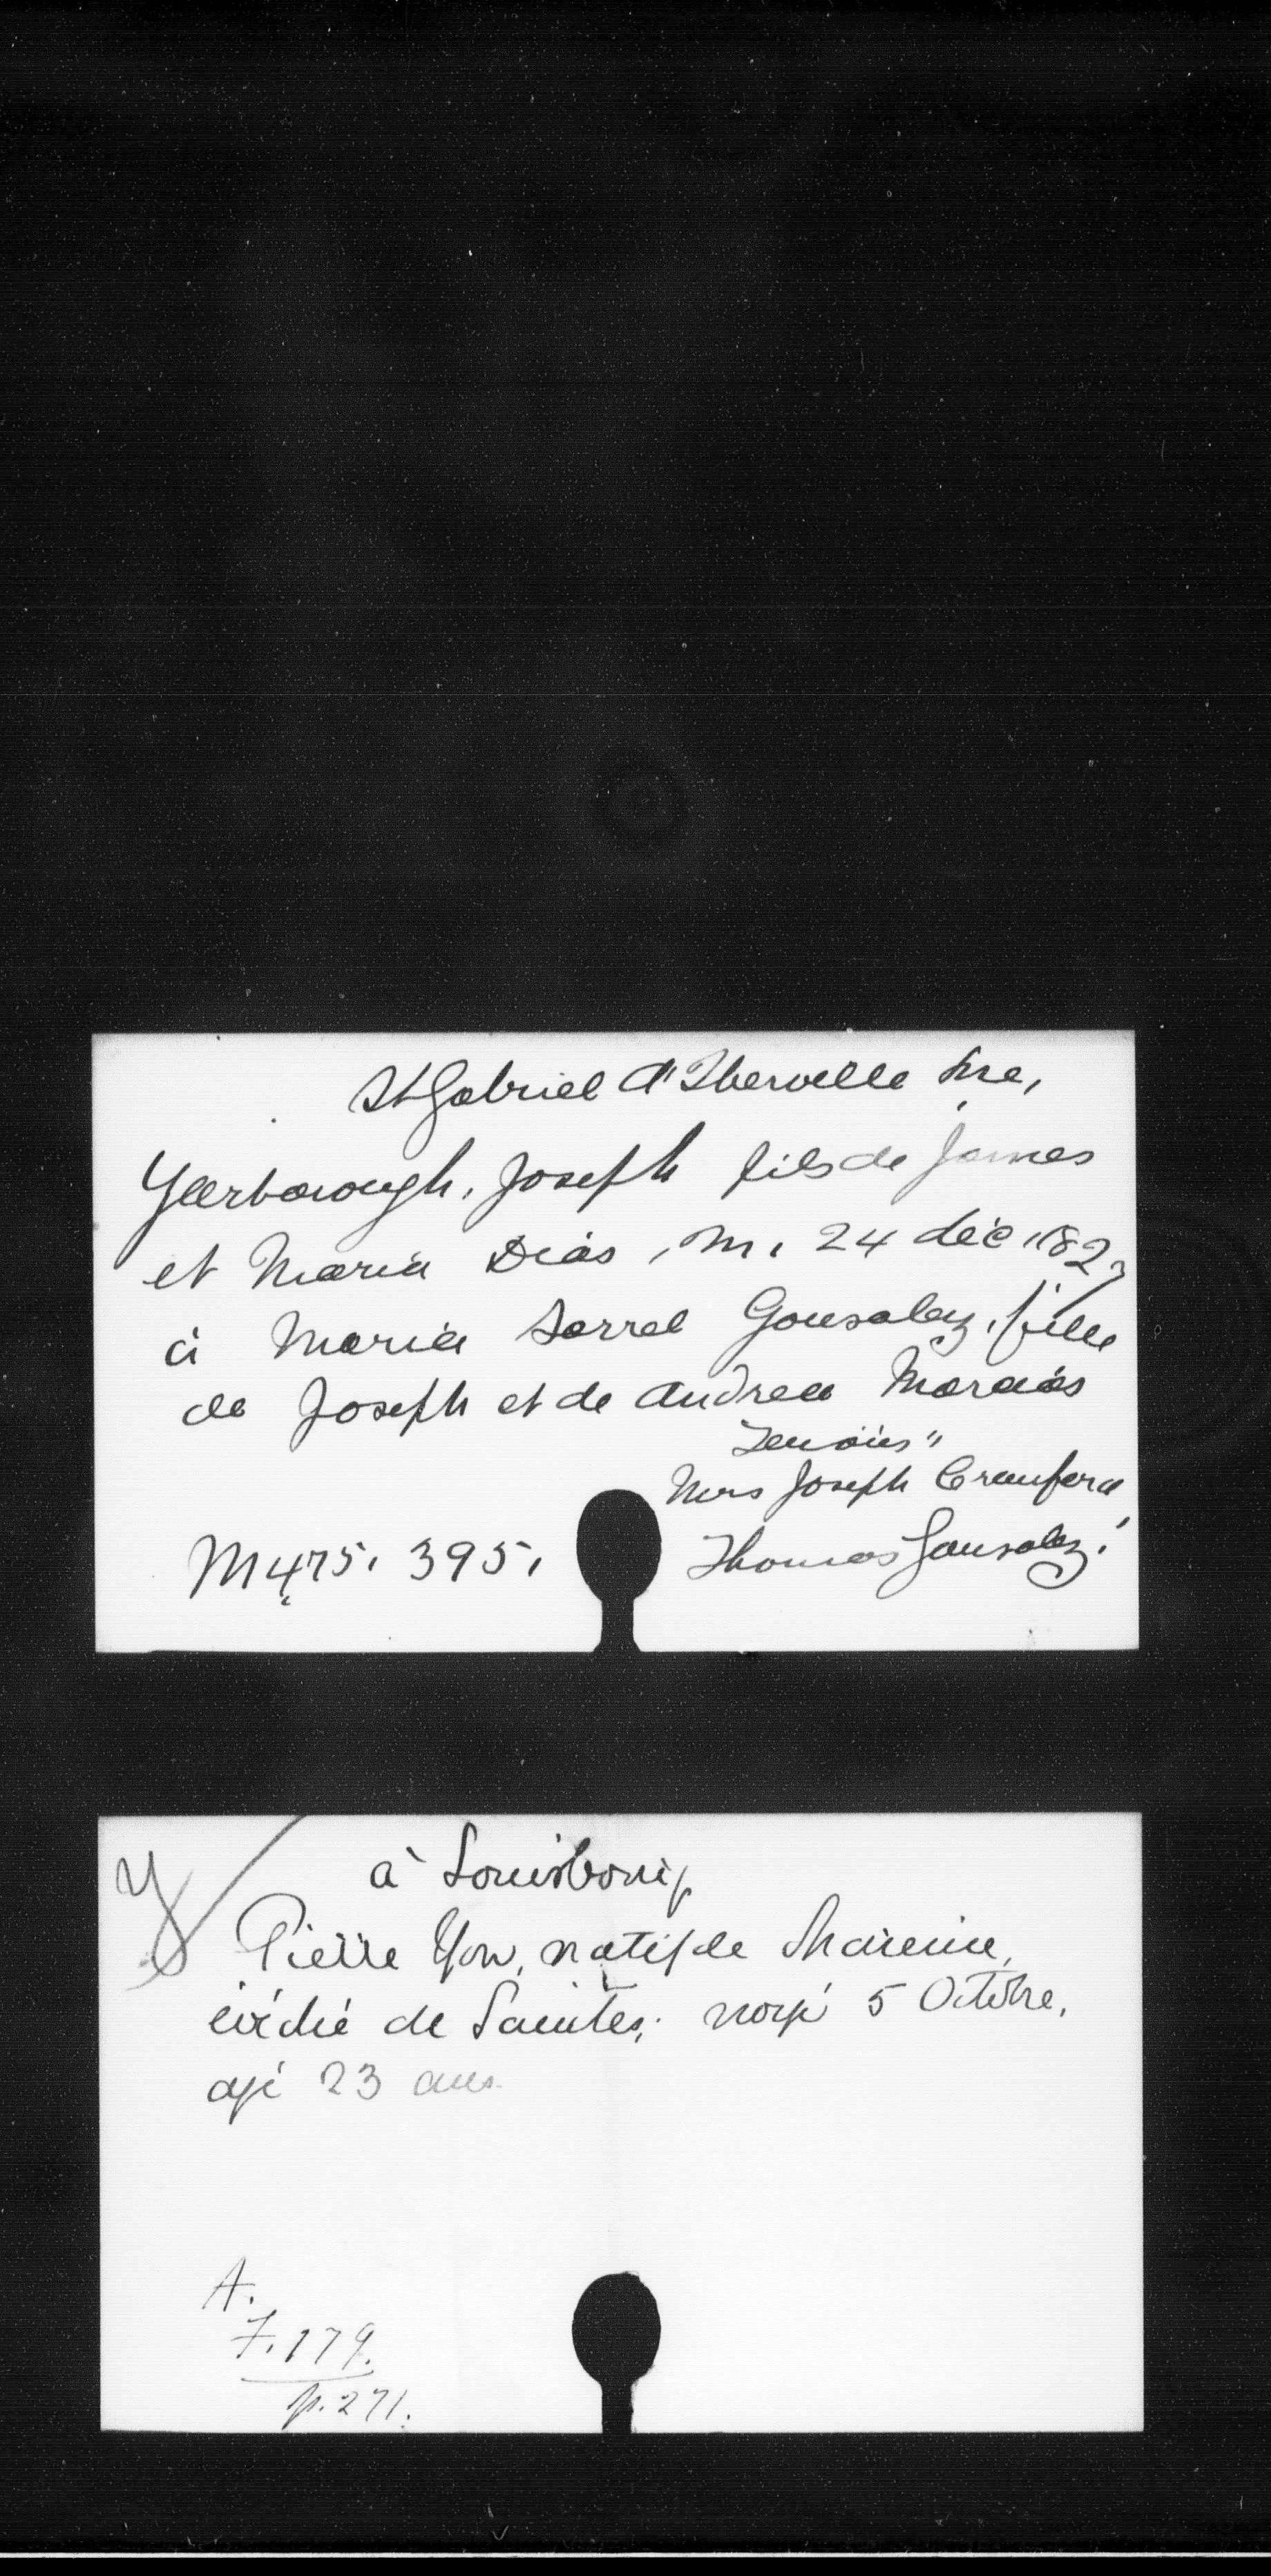 St Gabriel d'Iberville Lne,
Yerborough, Joseph fils de James
et Maria Dias, m. 24 déc 1823
à Maria Sorrel Gonsalez, fille
de Joseph et de Andrea Moraias
Temoins"
Mrs Joseph Crauford
M 475. 395. Thomas Gonsalez.
Y à Louisbourg
Pierre Yon, natif de Marenne,
évêché de Saintes, noyé 5 Octobre,
agé 23 ans.
A.
F. 179.
p. 271.